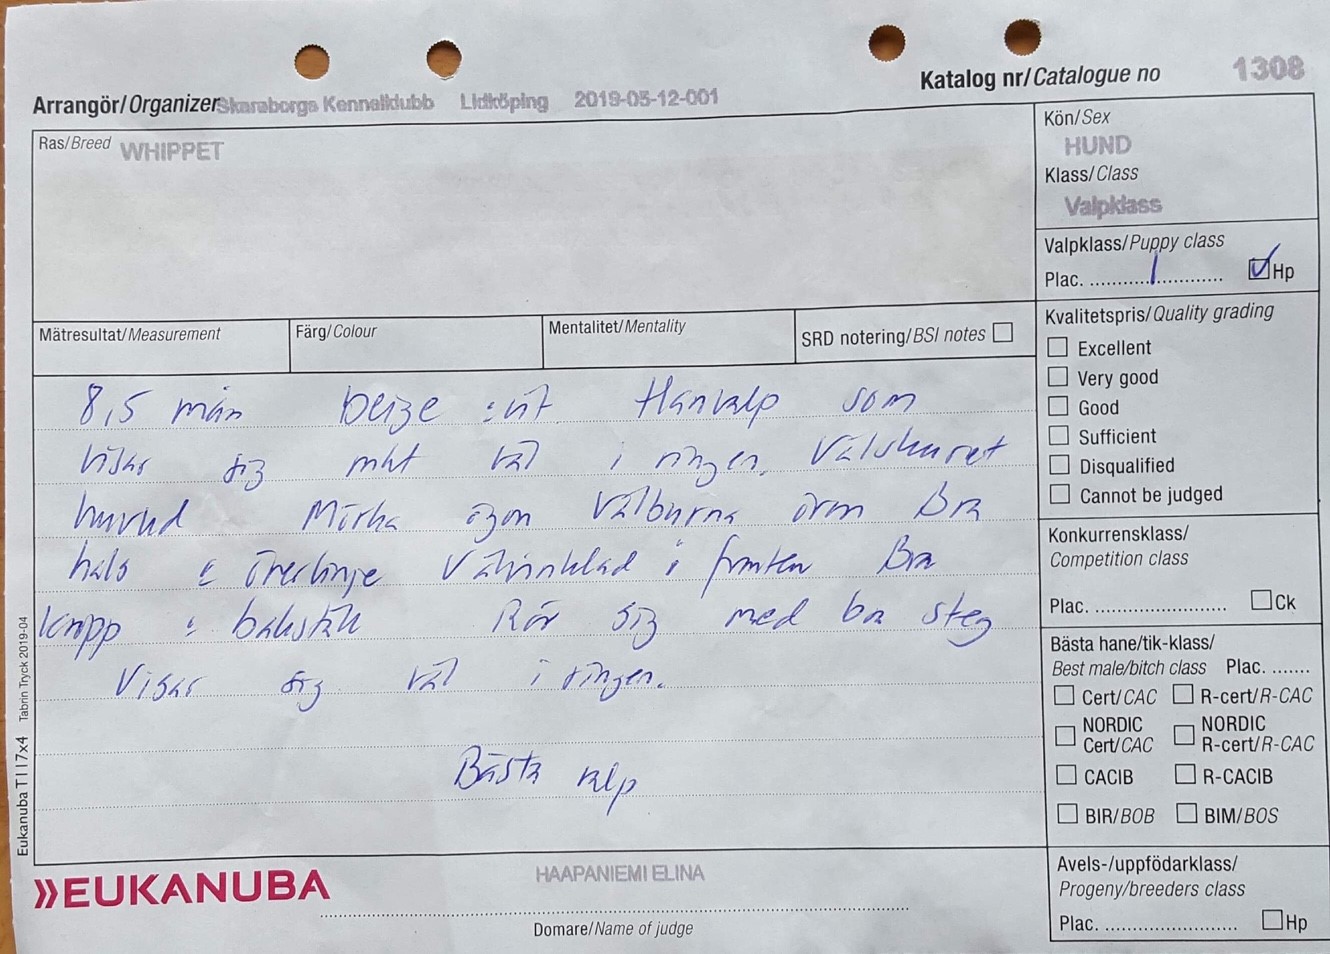 Katalog nr/Catalogue no 1308
Arrangör/Organizer Skaraborgs Kennelklubb Lidköping 2019-05-12-001
Ras/Breed WHIPPET
Kön/Sex
HUND
Klass/Class
Valpklass
Valpklass/Puppy class
Plac. 1 Hp
Mätresultat/Measurement
Färg/Colour
Mentalitet/Mentality
SRD notering/BSI notes
8,5 mån beige & vit Hanvalp som
visar sig mkt väl i ringen. Välskuret
huvud Mörka ögon Välburna öron Bra
hals & överlinje Välvinklad i fronten Bra
kropp & bakställ Rör sig med bra steg
Visar sig väl i ringen.
Bästa valp
Kvalitetspris/Quality grading
Excellent
Very good
Good
Sufficient
Disqualified
Cannot be judged
Konkurrensklass/
Competition class
Plac. Ck
Bästa hane/tik-klass/
Best male/bitch class Plac.
Cert/CAC R-cert/R-CAC
NORDIC Cert/CAC NORDIC R-cert/R-CAC
CACIB R-CACIB
BIR/BOB BIM/BOS
Avels-/uppfödarklass/
Progeny/breeders class
Plac. Hp
EUKANUBA
HAAPANIEMI ELINA
Domare/Name of judge
Eukanuba T117x4 Tabrin Tryck 2019-04